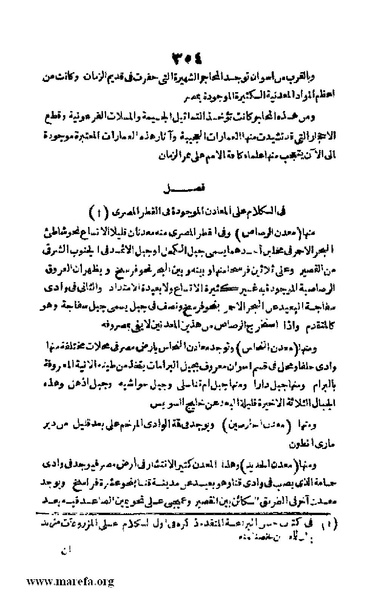 ٣٥٤
وبالقرب من أسوان توجد المحاجر الشهيرة التى حفرت فى قديم الزمان وكانت من
أعظم المواد المعدنية الكثيرة الموجودة بمصر
ومن هذه المحاجر كانت تؤخذ التماثيل الجسيمة والمسلات الفرعونية وقطع
الاحجار التى قد تشيدت منها العمارات العجيبة وآثار هذه العمارات المعتبرة موجودة
الى الآن يتعجب منها علماء كافة الامم على ممر الزمان
فصل
فى الكلام على المعادن الموجودة فى القطر المصرى (١)
منها (معدن الرصاص) وفى القطر المصرى منه معدنان قليلا الاتساع نحو شاطئ
البحر الاحمر فى محلين أحدهما يسمى جبل الكحل أو جبل الاثمد فى الجنوب الشرقى
من القصير وعلى ثلاثين فرسخا منها وبينه وبين البحر نحو فرسخ ويظهر ان العروق
الرصاصية الموجودة به غير كثيرة الاتساع ولا بعيدة الامتداد والثانى فى وادى
سفاجة البعيد عن البحر الاحمر بنحو فرسخ ونصف فى جبل يسمى جبل سفاجة وهو
كالمتقدم واذا استخرج الرصاص من هذين المعدنين لا يفى بمصروفه
ومنها (معدن النحاس) وتوجد معادن النحاس بارض مصر فى محلات مختلفة منها
وادى حلفا ومحل فى قسم اسوان معروف بجبل البرامات يتخذ من طينه الآنية المعروفة
بالبرام ومنها جبل دارا ومنها جبل ام تناسلى وجبل حواشيه وجبل اذهن وهذه
الجبال الثلاثة الاخيرة قليلة البعد عن خليج السويس
ومنها (معدن الخرصين) ويوجد فى قمة الوادى المرخم على بعد قليل من دير
مارى انطون
ومنها (معدن الحديد) وهذا المعدن كثير الانتشار فى أرض مصر فيوجد فى وادى
حمامة الذى يصب فى وادى قنا وهو بعيد عن مدينة قنا بنحو عشرة فراسخ ويوجد
معدن آخر فى الطريق الكائن بين القصير وعيجى على نحو يمين الصاعد فيه بعد
(١) فى كتاب حسن البراعة المتقدم ذكره فى أول الكلام على المزروعات
ان
www.marefa.org